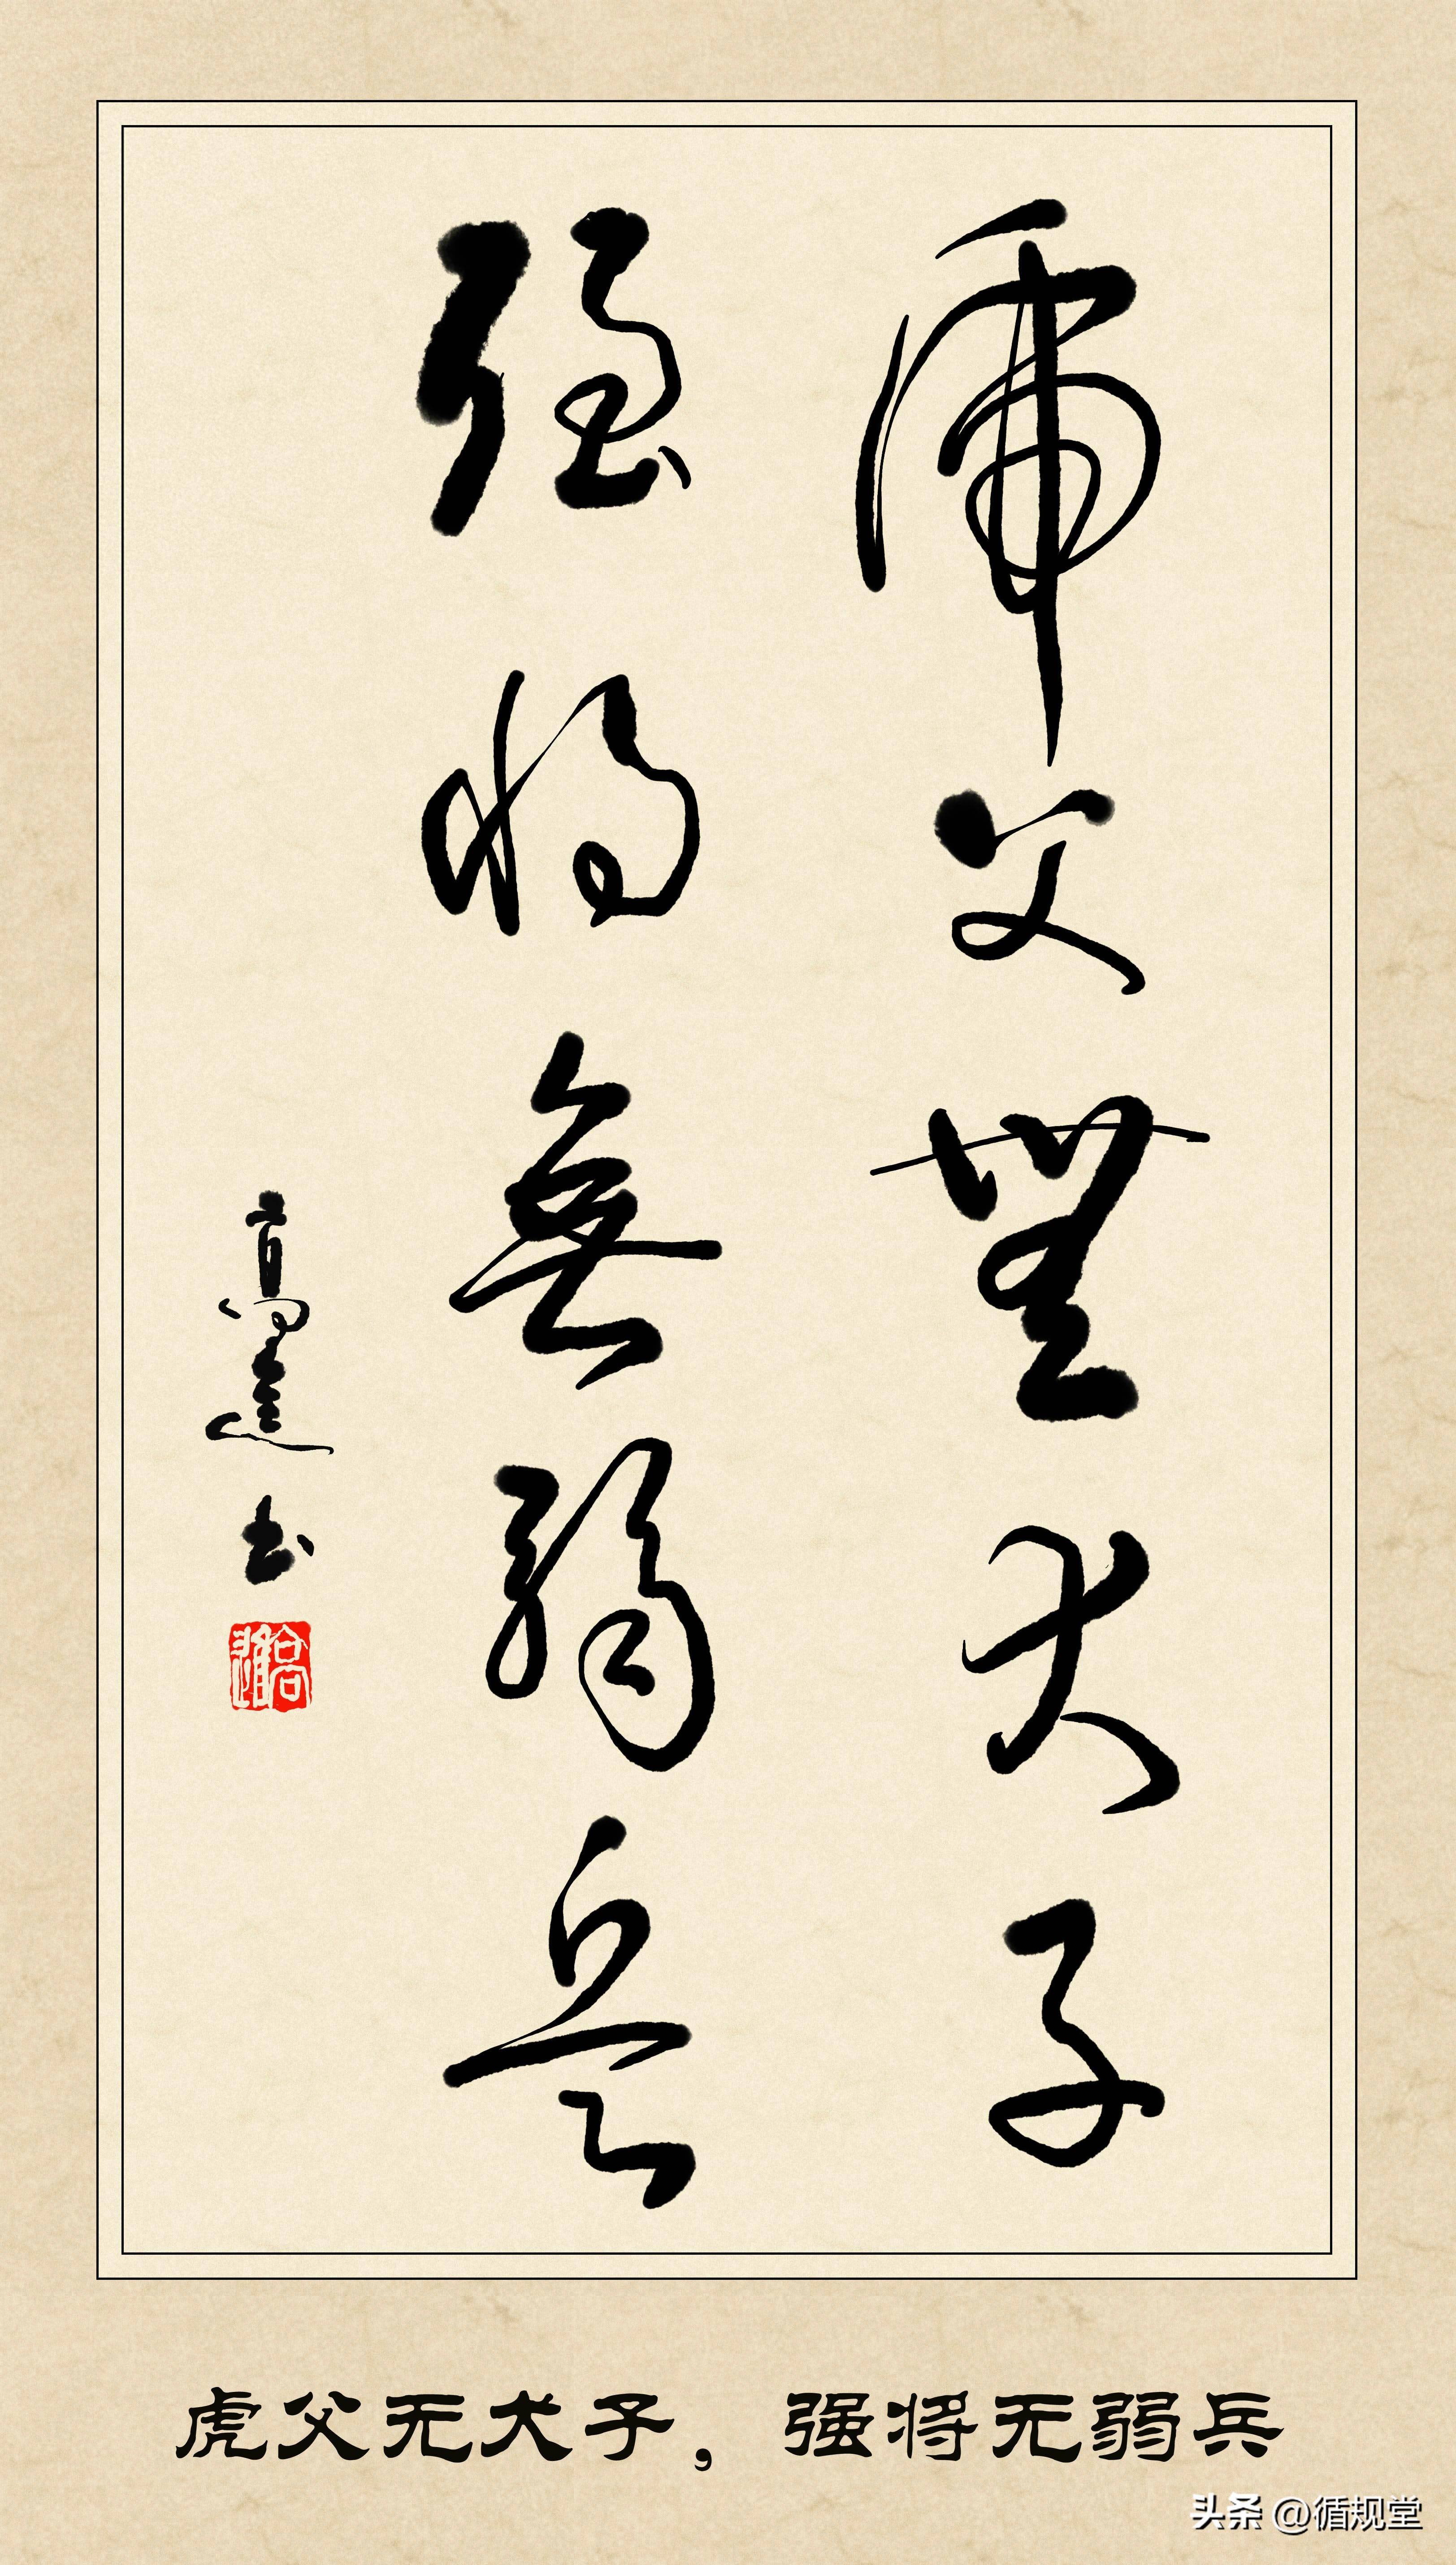 虎父無犬子
强将無弱兵
高進书
高進
虎父无犬子，强将无弱兵
头条 @循规堂